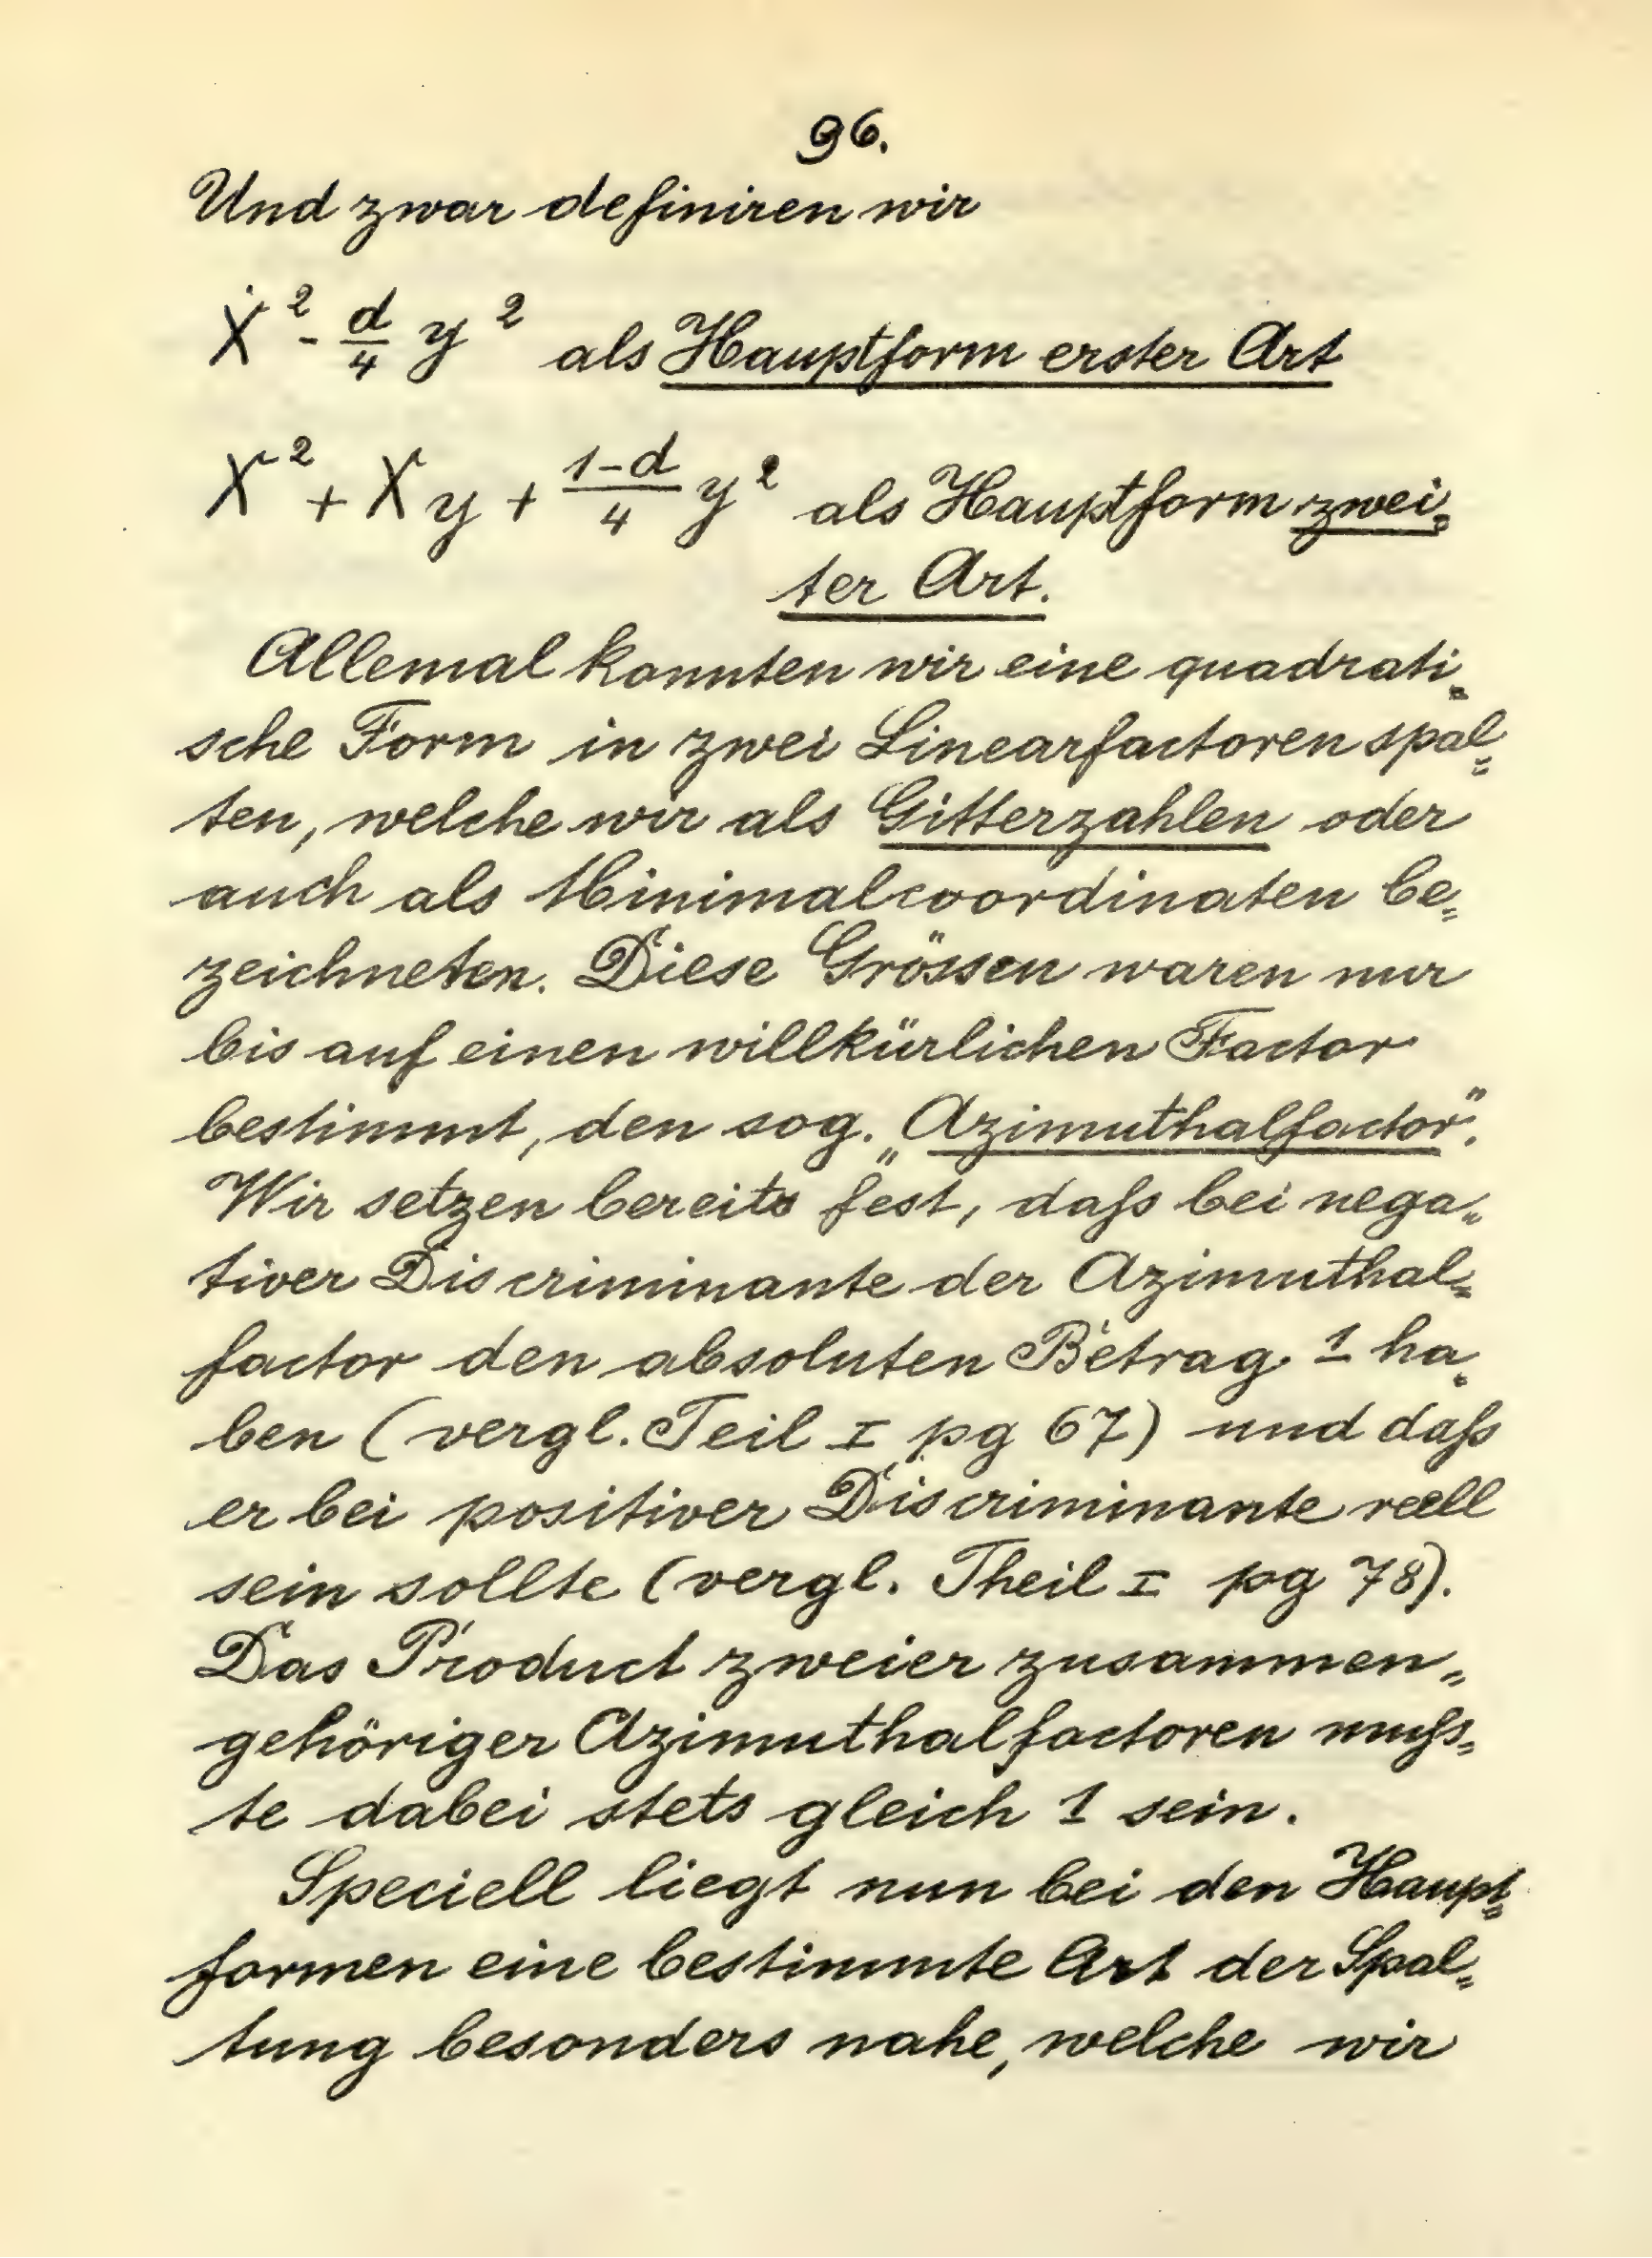 96.
Und zwar definiren wir
X² - d/4 y² als Hauptform erster Art
X² + Xy + (1-d)/4 y² als Hauptform zwei=
ter Art.
Allemal konnten wir eine quadrati=
sche Form in zwei Linearfactoren spal=
ten, welche wir als Gitterzahlen oder
auch als Minimalcoordinaten be=
zeichneten. Diese Grössen waren nur
bis auf einen willkürlichen Factor
bestimmt, den sog. „Azimuthalfactor".
Wir setzen bereits fest, daſs bei nega=
tiver Discriminante der Azimuthal=
factor den absoluten Betrag 1 ha=
ben (vergl. Teil I pg 67) und daſs
er bei positiver Discriminante reell
sein sollte (vergl. Theil I pg 78).
Das Product zweier zusammen=
gehöriger Azimuthalfactoren muſs=
te dabei stets gleich 1 sein.
Speciell liegt nun bei den Haupt=
formen eine bestimmte Art der Spal=
tung besonders nahe, welche wir